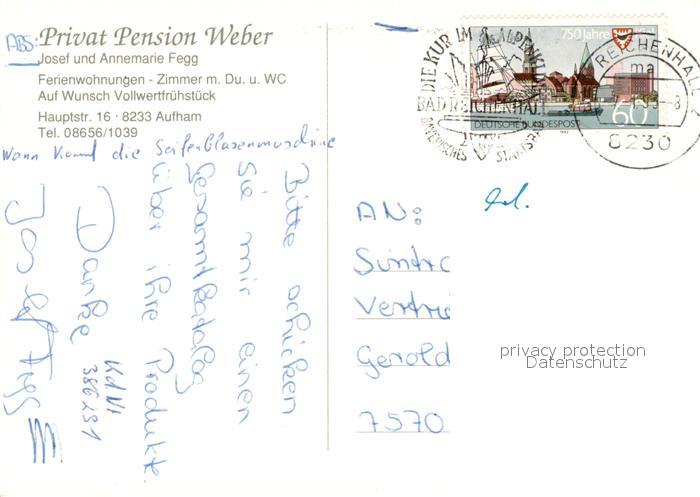 ABS:
Privat Pension Weber
Josef und Annemarie Fegg
Ferienwohnungen - Zimmer m. Du. u. WC
Auf Wunsch Vollwertfrühstück
Hauptstr. 16 · 8233 Aufham
Tel. 08656/1039
Wann kommt die Seifenblasenmaschine
Bitte schicken
Sie mir einen
Gesamtkatalog
über ihre Produkte.
Danke
KdNr
386191
Josef Fegg
750 Jahre
60
DEUTSCHE BUNDESPOST
DIE KUR IM ALPENKLIMA
BAD REICHENHALL
BAYERISCHES STAATSBAD
REICHENHALL
ma
-8
8230
AN:
Suntro
Vertrie
Gerold
7570
privacy protection
Datenschutz